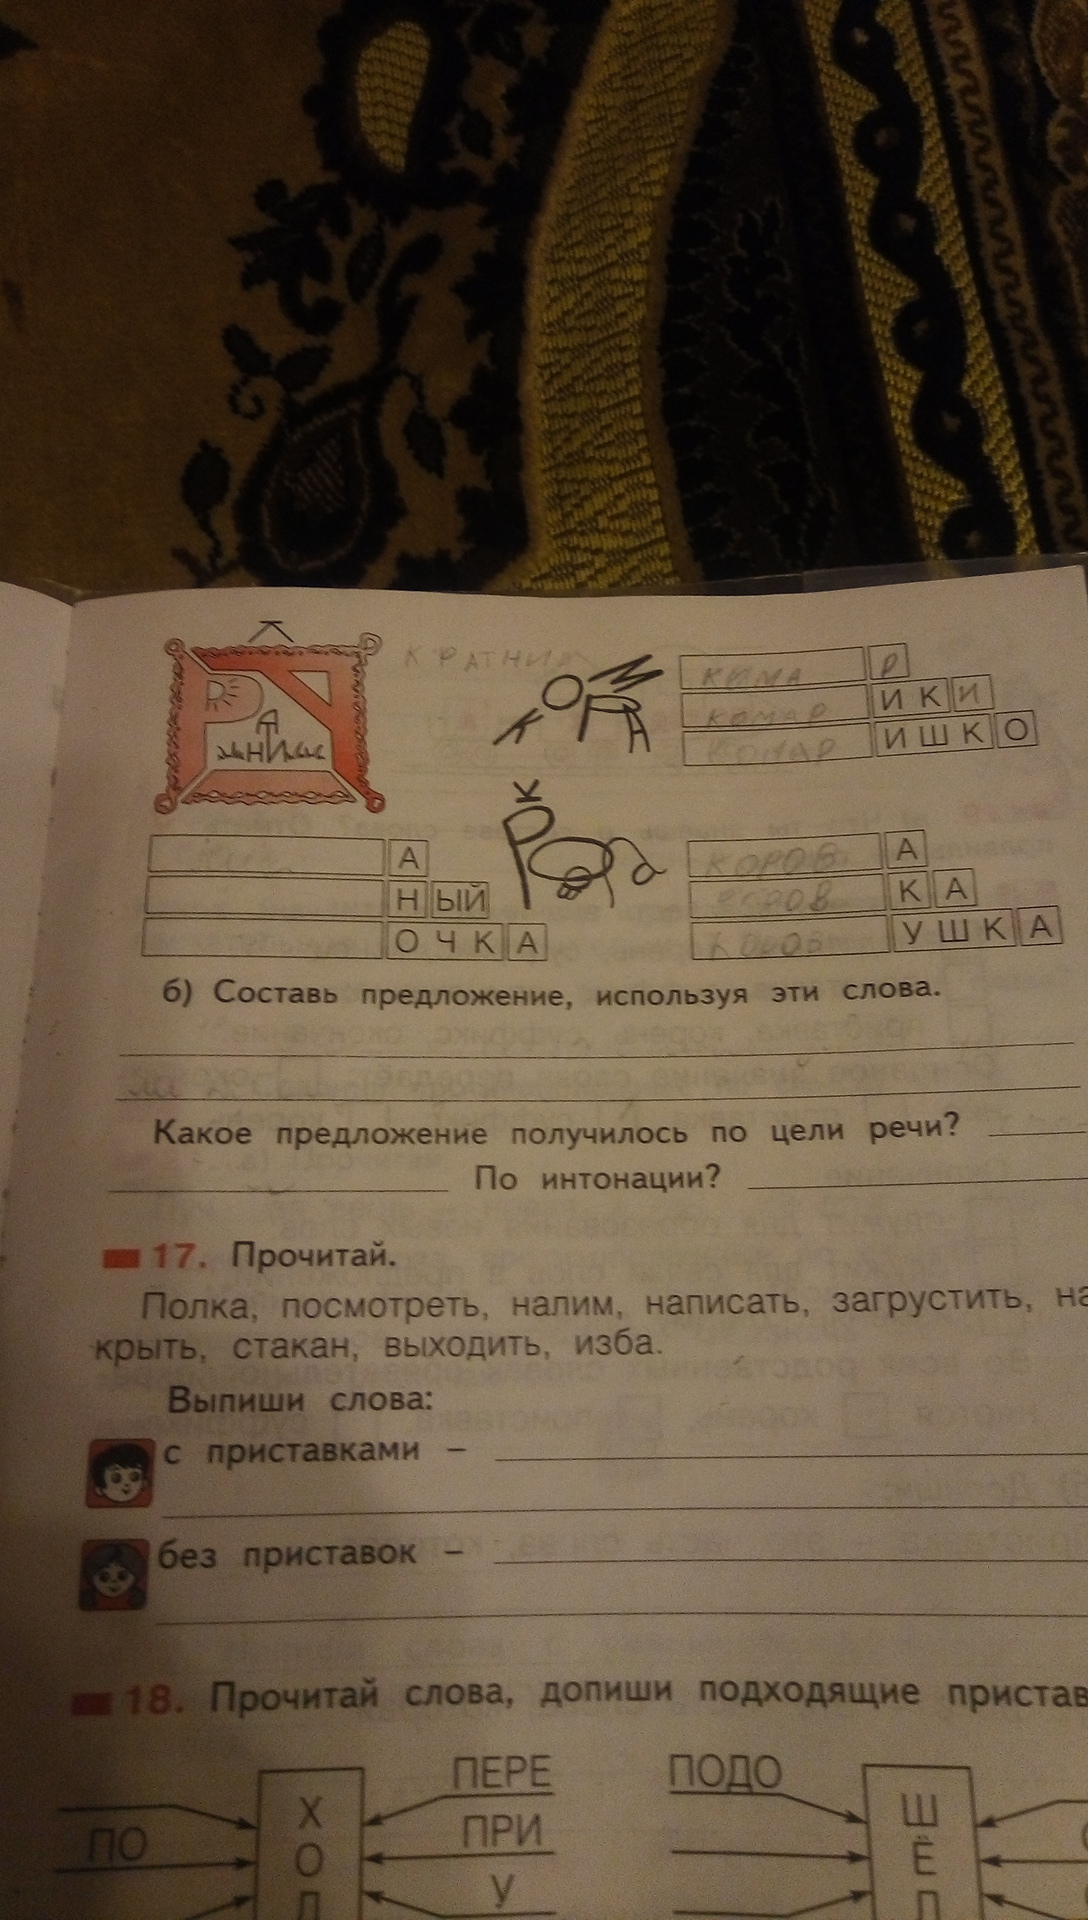 К Р АТНИ
КОМА Р
КОМАР И К И
КОМАР ИШК О
А
Н ЫЙ
ОЧК А
КОРОВ А
КОРОВ К А
КОРОВ УШК А
б) Составь предложение, используя эти слова.
Какое предложение получилось по цели речи?
По интонации?
17. Прочитай.
Полка, посмотреть, налим, написать, загрустить, на
крыть, стакан, выходить, изба.
Выпиши слова:
с приставками –
без приставок –
18. Прочитай слова, допиши подходящие пристав
ПЕРЕ ПОДО
ПО ХОД ПРИ ШЁЛ
У